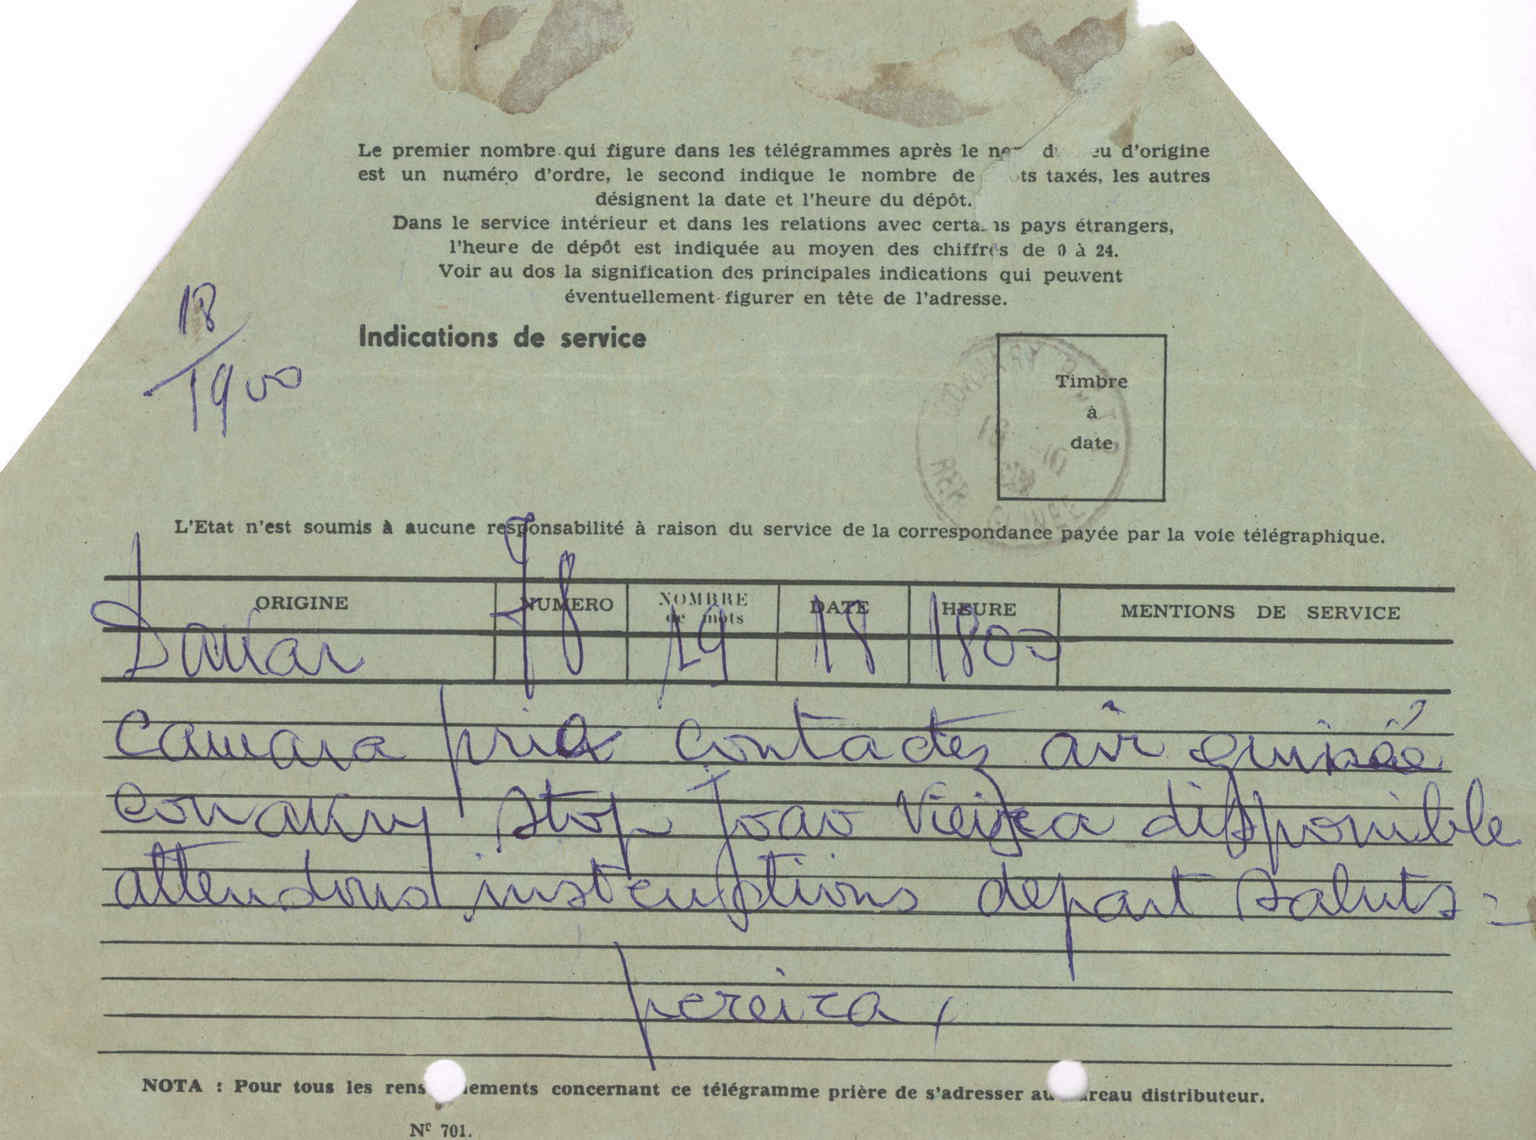 Le premier nombre qui figure dans les télégrammes après le d'origine
est un numéro d'ordre, le second indique le nombre de taxés, les autres
désignent la date et l'heure du dépôt.
Dans le service intérieur et dans les relations avec pays étrangers,
l'heure de dépôt est indiquée au moyen des chiffres de 0 à 24.
Voir au dos la signification des principales indications qui peuvent
éventuellement figurer en tête de l'adresse.
18
1900
Indications de service
Timbre
à
date
CONAKRY
REP GUINEE
L'Etat n'est soumis à aucune responsabilité à raison du service de la correspondance payée par la voie télégraphique.
ORIGINE NUMERO NOMBRE de mots DATE HEURE MENTIONS DE SERVICE
Dakar 78 19 18 1800
Camara prie contacter air guinée
conakry stop Joao Vieira disponible
attendons instructions depart saluts =
pereira,
NOTA : Pour tous les concernant ce télégramme prière de s'adresser au distributeur.
Nº 701.